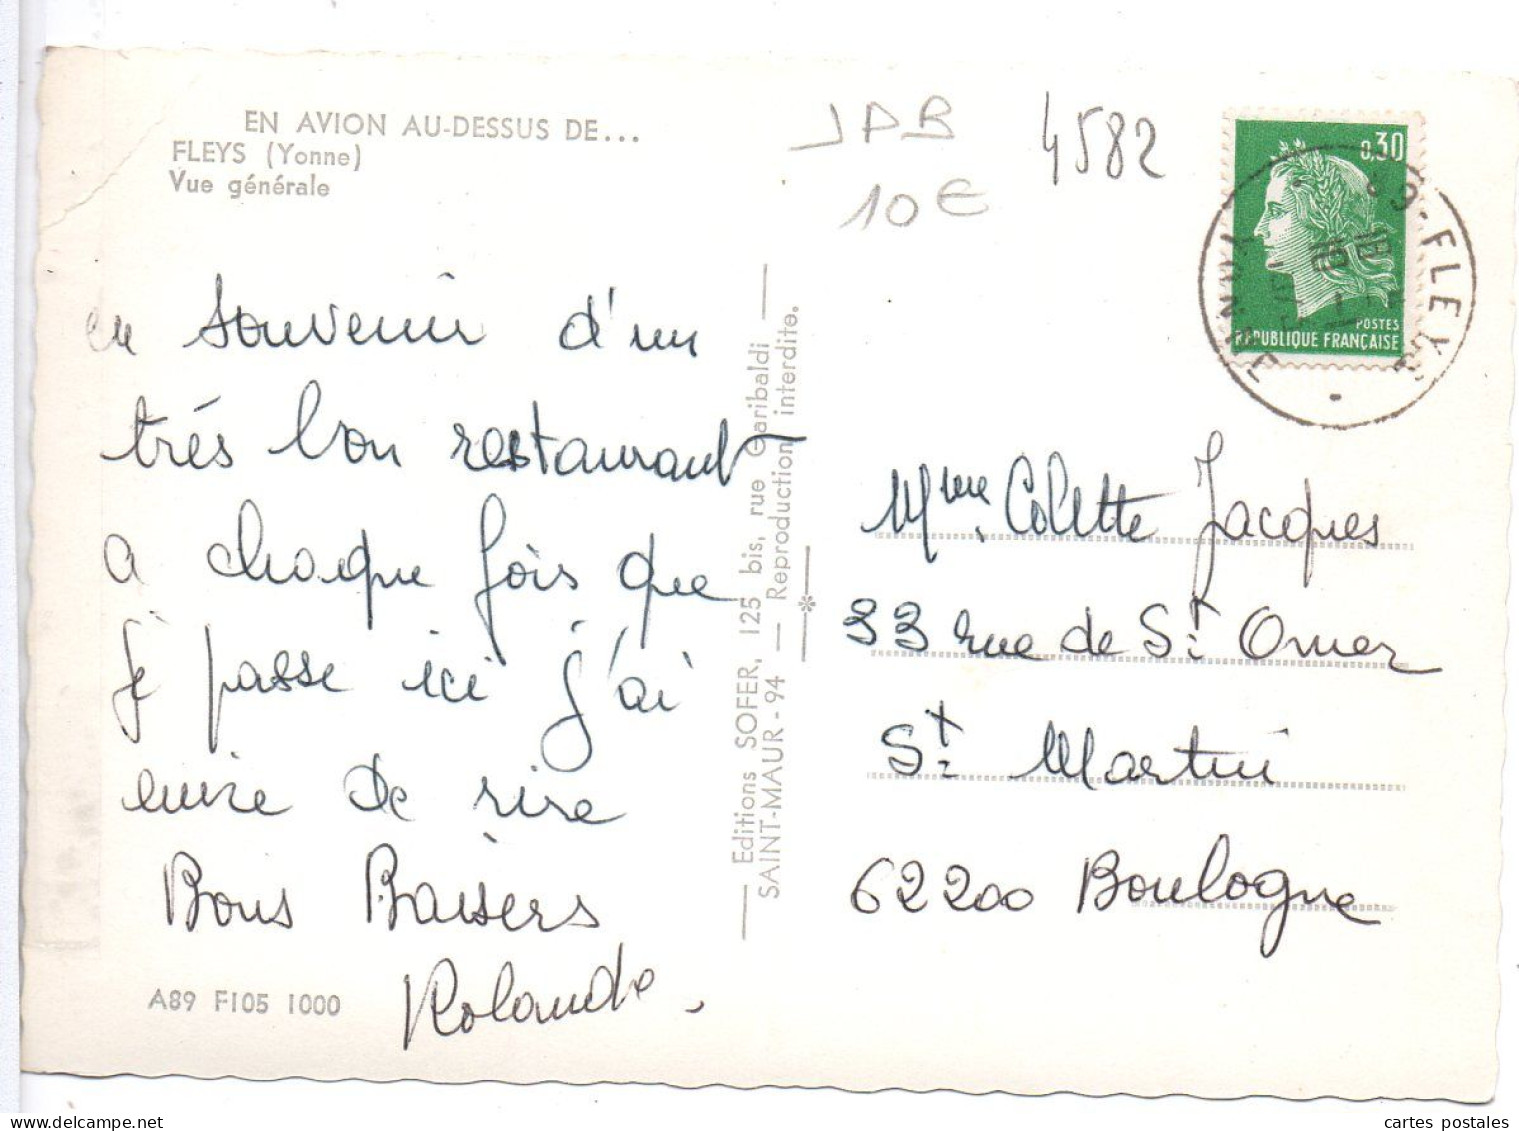 EN AVION AU-DESSUS DE...
FLEYS (Yonne)
Vue générale
JPB
10€
4582
0,30
POSTES
REPUBLIQUE FRANÇAISE
FLEYS
YONNE
en souvenir d'un
trés bon restaurant
a chaque fois que
je passe ici j'ai
envie de rire
Bons Baisers
Rolande.
A89 F105 1000
Editions SOFER, 125 bis, rue Garibaldi
SAINT-MAUR - 94 — Reproduction interdite.
Mme Colette Jacques
33 rue de St Omer
St Martin
62200 Boulogne
cartes postales